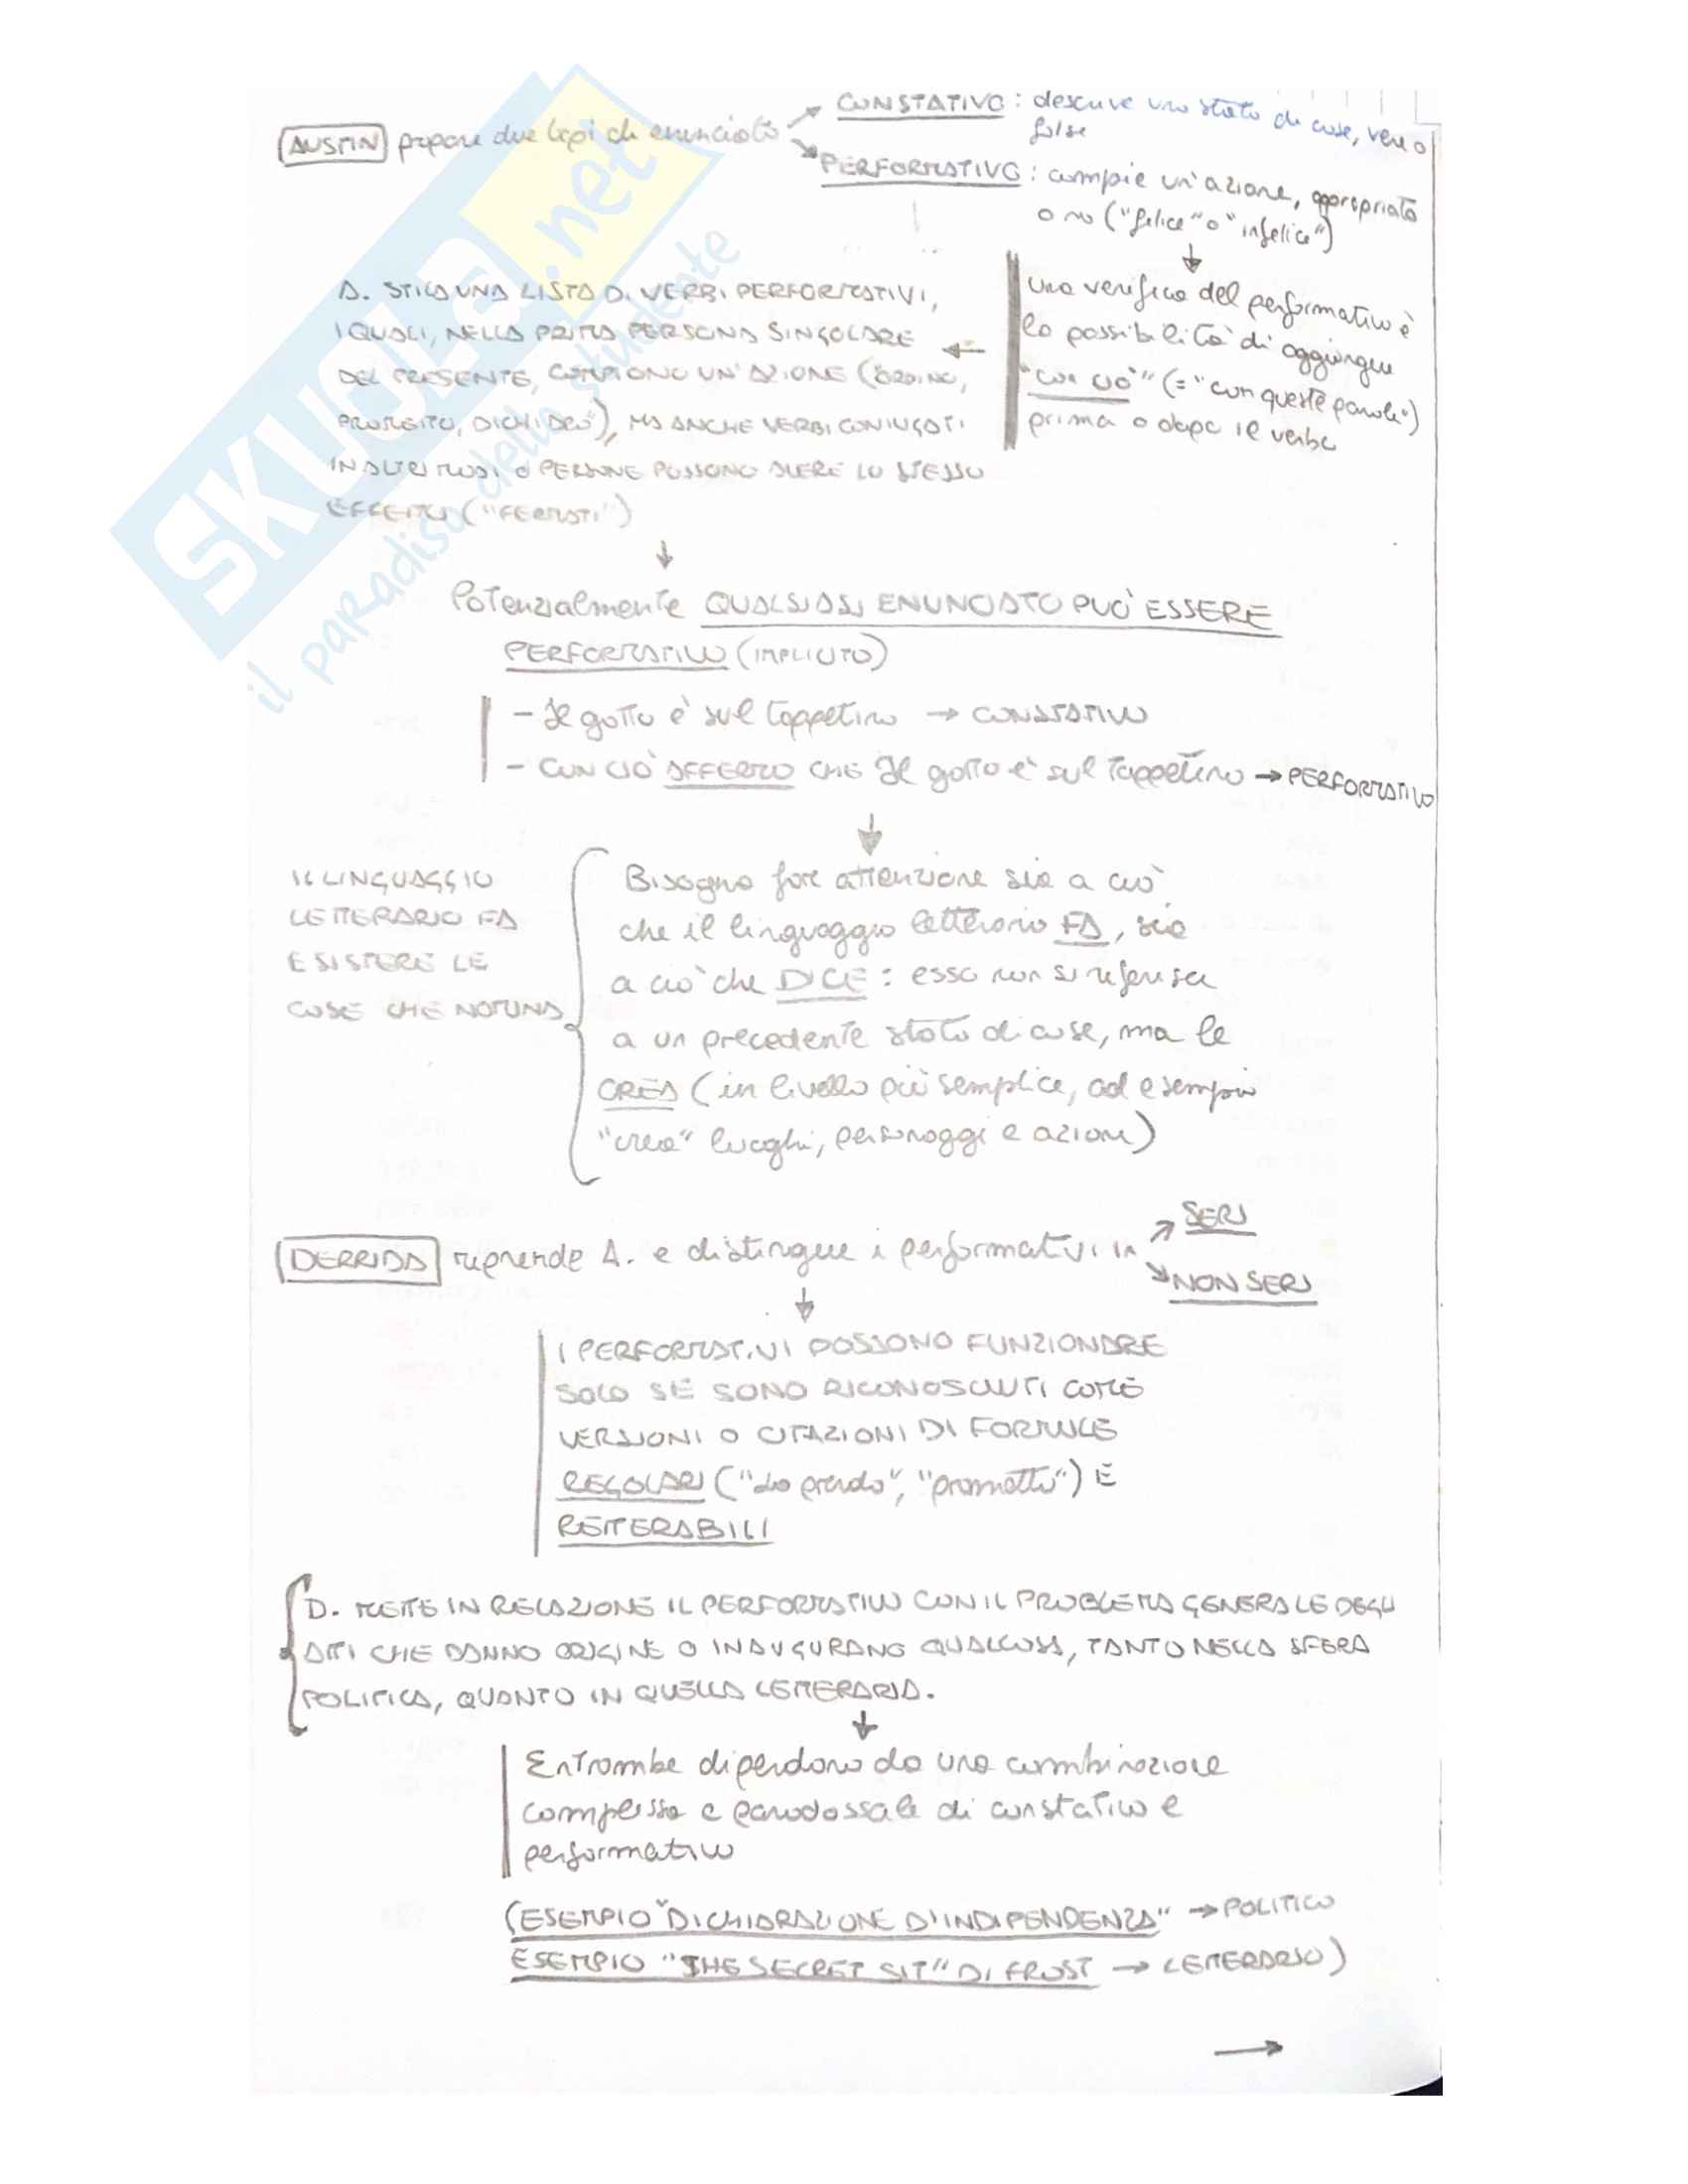 SKUOLA.net
il paradiso dello studente
AUSTIN propone due tipi di enunciato
CONSTATIVO: descrive uno stato di cose, vero o
falso
PERFORMATIVO: compie un'azione, appropriata
o no ("felice" o "infelice")
una verifica del performativo è
la possibilità di aggiungere
"con ciò" (="con queste parole")
prima o dopo il verbo
A. STILA UNA LISTA DI VERBI PERFORMATIVI,
I QUALI, NELLA PRIMA PERSONA SINGOLARE
DEL PRESENTE, COMPIONO UN'AZIONE ("ORDINO,
PROMETTO, DICHIARO"), MA ANCHE VERBI CONIUGATI
IN ALTRI MODI O PERSONE POSSONO AVERE LO STESSO
EFFETTO ("FERMATI")
Potenzialmente QUALSIASI ENUNCIATO PUÒ ESSERE
PERFORMATIVO (IMPLICITO)
- Il gatto è sul tappetino → CONSTATIVO
- CON CIÒ AFFERMO CHE Il gatto è sul tappetino → PERFORMATIVO
IL LINGUAGGIO
LETTERARIO FA
ESISTERE LE
COSE CHE NOMINA
Bisogna fare attenzione sia a ciò
che il linguaggio letterario FA, sia
a ciò che DICE: esso non si riferisce
a un precedente stato di cose, ma le
CREA (in livello più semplice, ad esempio
"crea" luoghi, personaggi e azioni)
DERRIDA riprende A. e distingue i performativi in
SERI
NON SERI
I PERFORMATIVI POSSONO FUNZIONARE
SOLO SE SONO RICONOSCIUTI COME
VERSIONI O CITAZIONI DI FORMULE
REGOLARI ("Lo prendo", "prometto") E
REITERABILI
D. METTE IN RELAZIONE IL PERFORMATIVO CON IL PROBLEMA GENERALE DEGLI
ATTI CHE DANNO ORIGINE O INAUGURANO QUALCOSA, TANTO NELLA SFERA
POLITICA, QUANTO IN QUELLA LETTERARIA.
Entrambe dipendono da una combinazione
complessa e paradossale di constativo e
performativo
(ESEMPIO "DICHIARAZIONE D'INDIPENDENZA" → POLITICO
ESEMPIO "THE SECRET SIT" DI FROST → LETTERARIO)
→